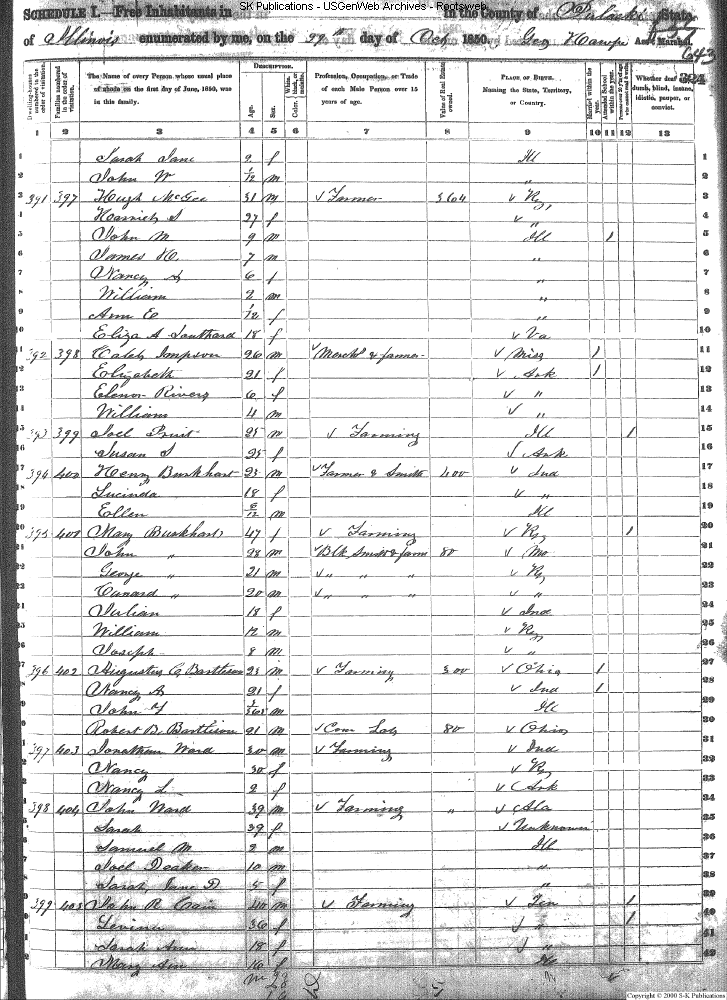 SK Publications - USGenWeb Archives - Rootsweb
SCHEDULE I. Free Inhabitants in in the County of Pulaski State
of Illinois enumerated by me, on the 29th day of Oct 1850. Geo Ass't Marshal.
643
Dwelling-houses numbered in the order of visitation.
Families numbered in the order of visitation.
The Name of every Person whose usual place of abode on the first day of June, 1850, was in this family.
DESCRIPTION.
Age.
Sex.
Color, White, black, or mulatto.
Profession, Occupation, or Trade of each Male Person over 15 years of age.
Value of Real Estate owned.
PLACE OF BIRTH. Naming the State, Territory, or Country.
Married within the year.
Attended School within the year.
Whether deaf and dumb, blind, insane, idiotic, pauper, or convict.
1 2 3 4 5 6 7 8 9 10 11 12 13
1 Sarah Jane 2 f Ill 1
2 John W /12 m " 2
3 391 397 Hugh McGee 31 m Farmer Ky 3
4 Harriet S 27 f " 4
5 John M 9 m Ill 1 5
6 James H. 7 m " 6
7 Nancy 6 f " 7
8 William 2 m " 8
9 Ann E /12 f " 9
10 Eliza A Southard 18 f Va 10
11 392 398 Caleb Impson 26 m Merch & farmer Miss 1 11
12 Elizabeth 21 f Ark 1 12
13 Elenor Rivers 6 f " 13
14 William 4 m " 14
15 393 399 Joel Pruit 25 m Farming Ill 1 15
16 Susan S 25 f Ark 16
17 394 400 Henry Burkhart 23 m Farmer & Smith 400 Ind 17
18 Lucinda 18 f " 18
19 Ellen /12 m Ill 19
20 395 401 Mary Burkhart 47 f Farming Ky 1 20
21 John " 28 m Blk Smith & farm 80 Mo 21
22 George " 21 m " " " Ky 22
23 " 20 m " " " " 23
24 Julian 18 f Ind
William 12 m Ky
Joseph 8 m "
396 402 Augustus C. Barttleson 23 m Farming 300 Ohio 1
Nancy A 21 f Ind 1
John Y /365 m Ill
Robert B. Barttleson 21 m Com Lab 80 Ohio
397 403 Jonathan Ward 30 m Farming Ind
Nancy 30 f Ky
Nancy L 2 f Ark
398 404 John Ward 39 m Farming " Ala
Sarah 39 f Unknown
Samuel M 2 m Ill
Joel 10 m "
Sarah Jane D 5 f "
399 405 John R Cain 40 m Farming Ten 1
36 f " 1
Sarah Ann 18 f "
Mary Ann 16 f Ill
Copyright © 2000 S-K Publications